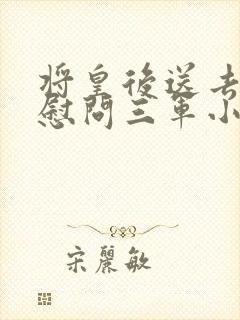 將皇後送去
慰問三軍小
宋麗敏